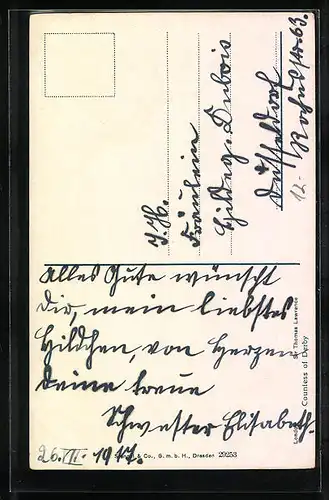 J. H.
Fräulein
Hildeg. Dubois
Düsseldorf
Rochusstr. 63.
12.-
Alles Gute wünscht
Dir, mein liebstes
Hildchen, von Herzen
Deine treue
Schwester Elisabeth.
26. III. 1917.
& Co., G. m. b. H., Dresden 29253
Sir Thomas Lawrence
Countess of Derby